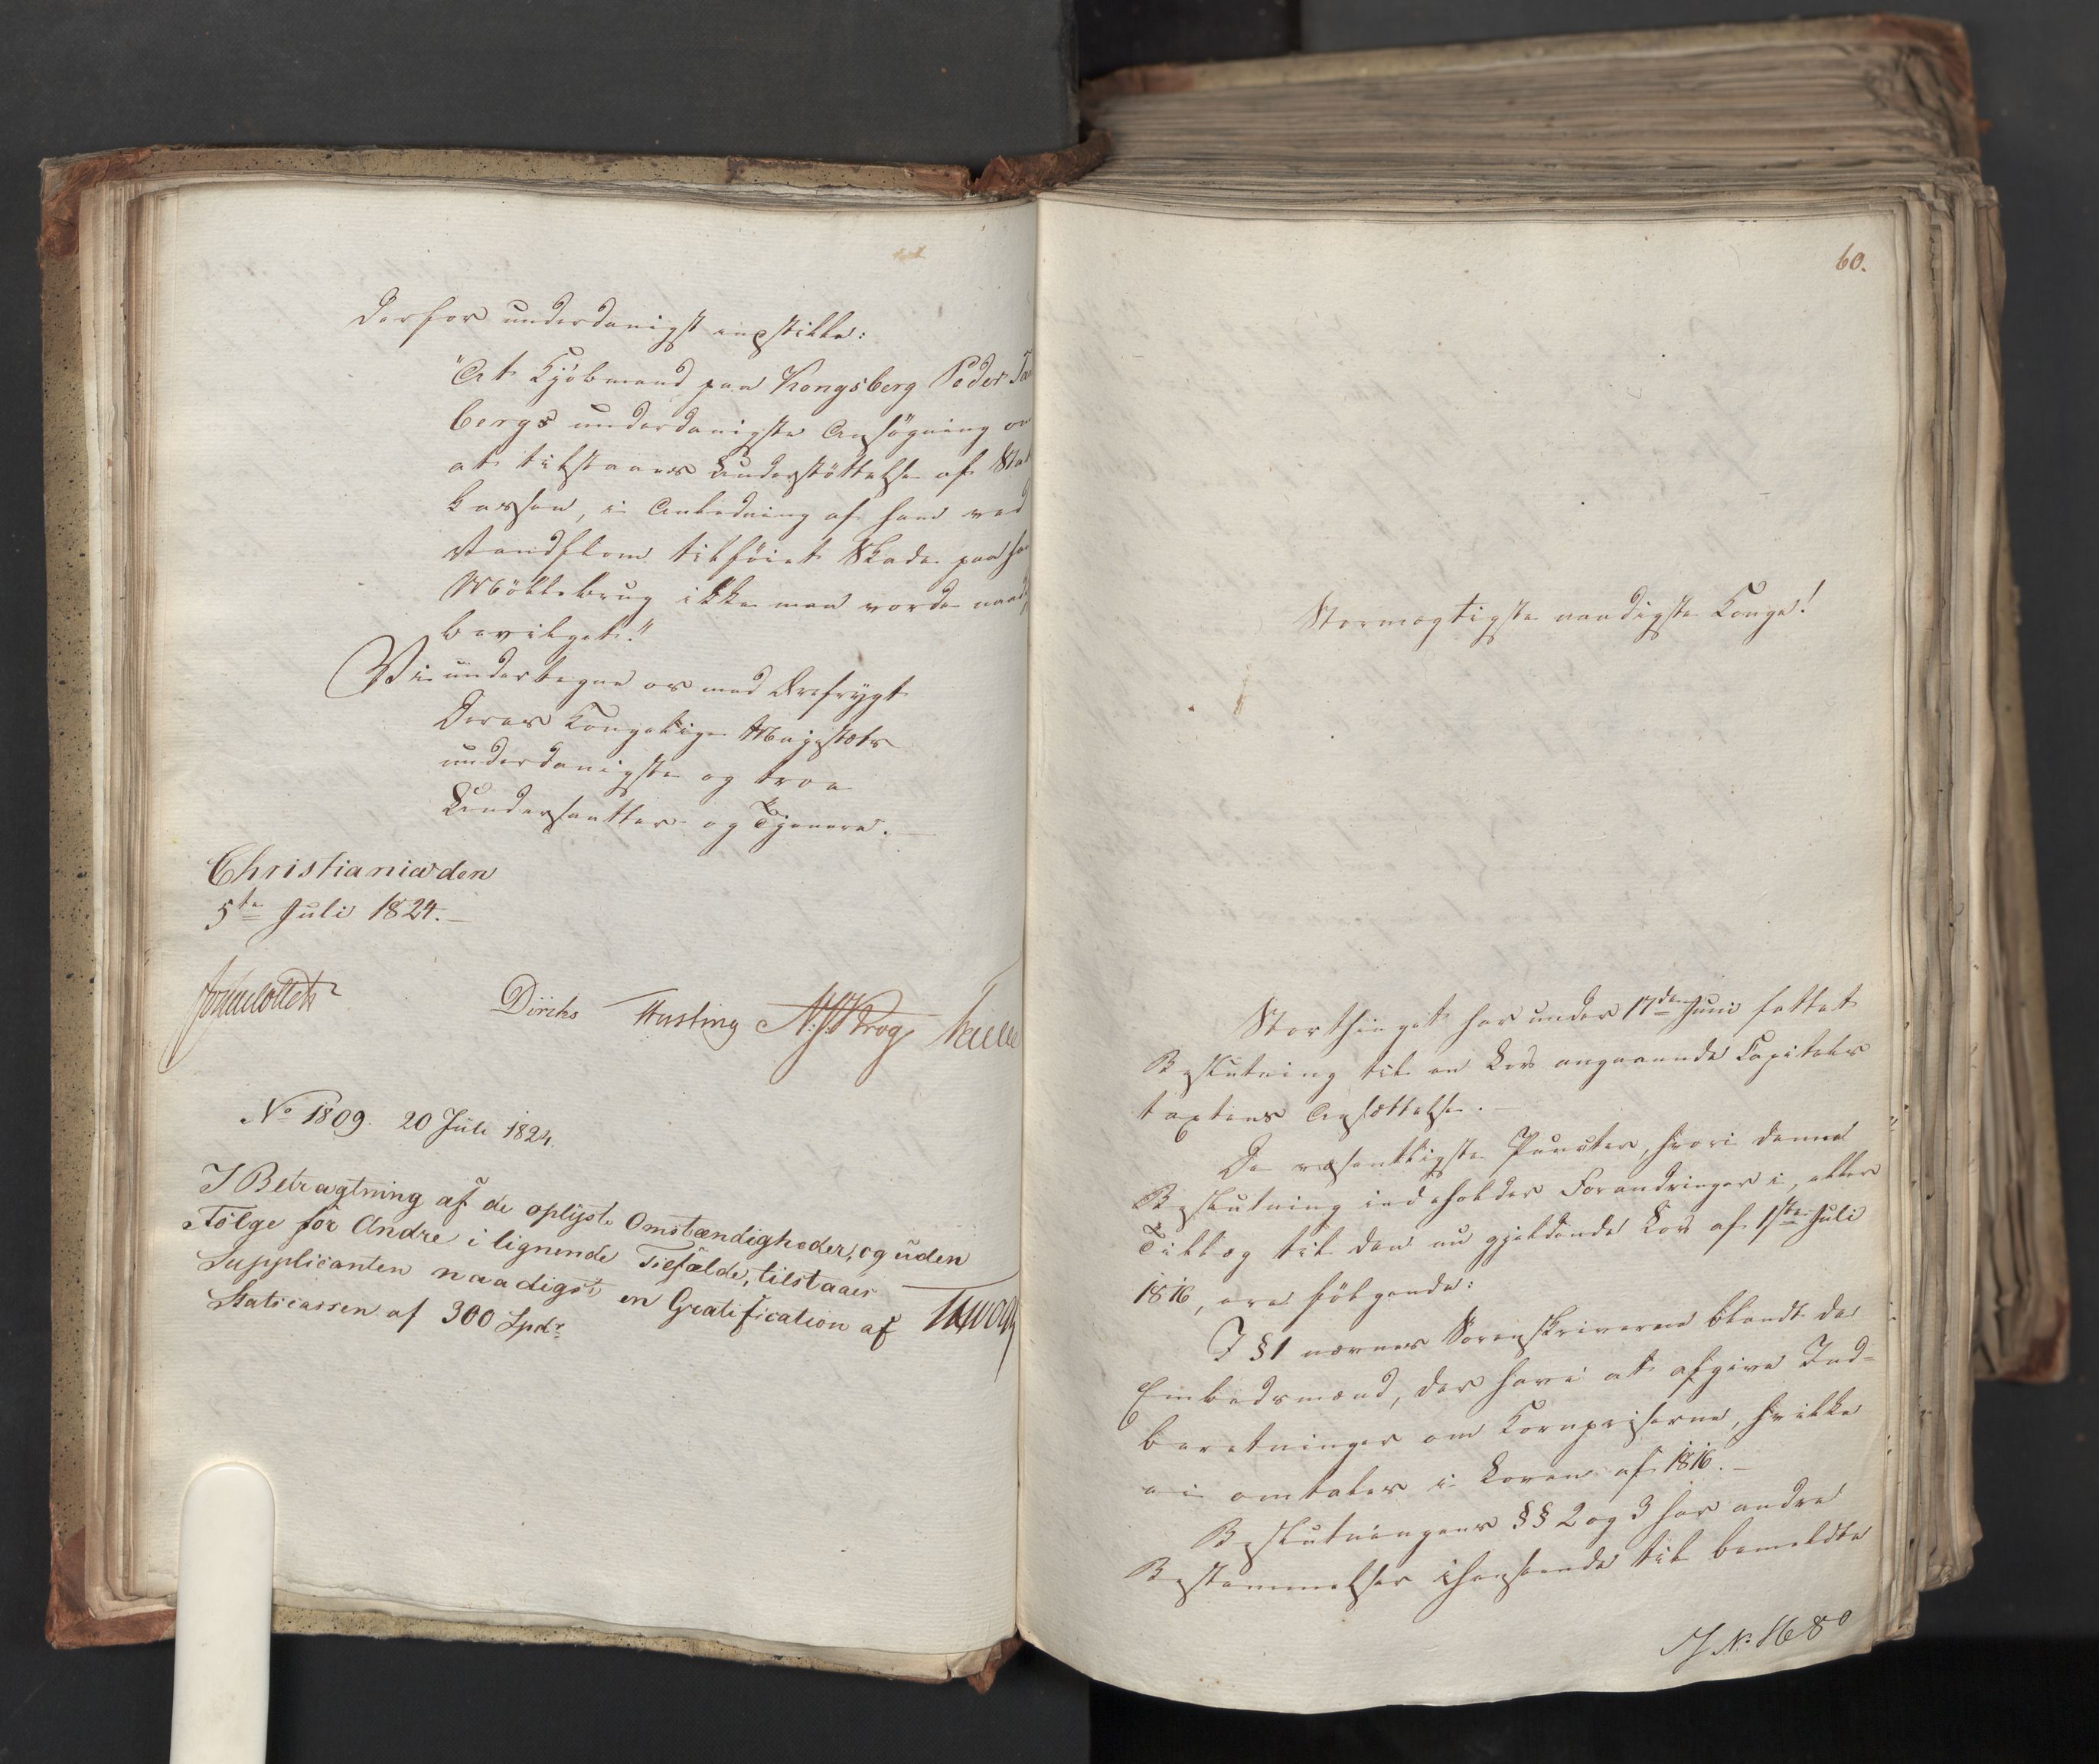 derfor underdanigst indstille:
"At Kjöbmand paa Kongsberg Peder
bergs underdanigste Ansögning om
at tilstaaes Understöttelse af Stats
kassen, i Anledning af ham ved
Vandflom tilföiet Skade paa
Möllebrug ikke maa vorde
bevilget."
Vi undertegne os med Ærefrygt
Deres Kongelige Majestæts
underdanigste og troe
Undersaatter og Tjenere.
Christiania den
5te Juli 1824.
Jonas Collett
Diriks Hasting N: J: Krog
No 1809. 20 Juli 1824.
I Betragtning af de oplÿste Omstændigheder, og uden
Fölge for Andre i lignende Tilfælde, tilstaaes
Supplicanten naadigst en Gratification af
Statscassen af 300 Spdr
60.
Stormægtigste naadigste Konge!
Storthinget har under 17de Juni fattet
Beslutning til en Lov angaaende Capitels
taxtens Ansættelse.
De væsentligste Puncter, hvori denne
Beslutning indeholder Forandringer i, eller
Tillæg til den nu gjeldende Lov af 1ste Juli
1816, ere fölgende:
I § 1 nævnes Sorenskriverne blandt de
Embedsmænd, der have at afgive Ind=
beretninger om Kornpriserne, hvilke
ei omtales i Loven af 1816.
Beslutningens §§ 2 og 3 har andre
Bestemmelser ihenseende til bemeldte
J No 1680